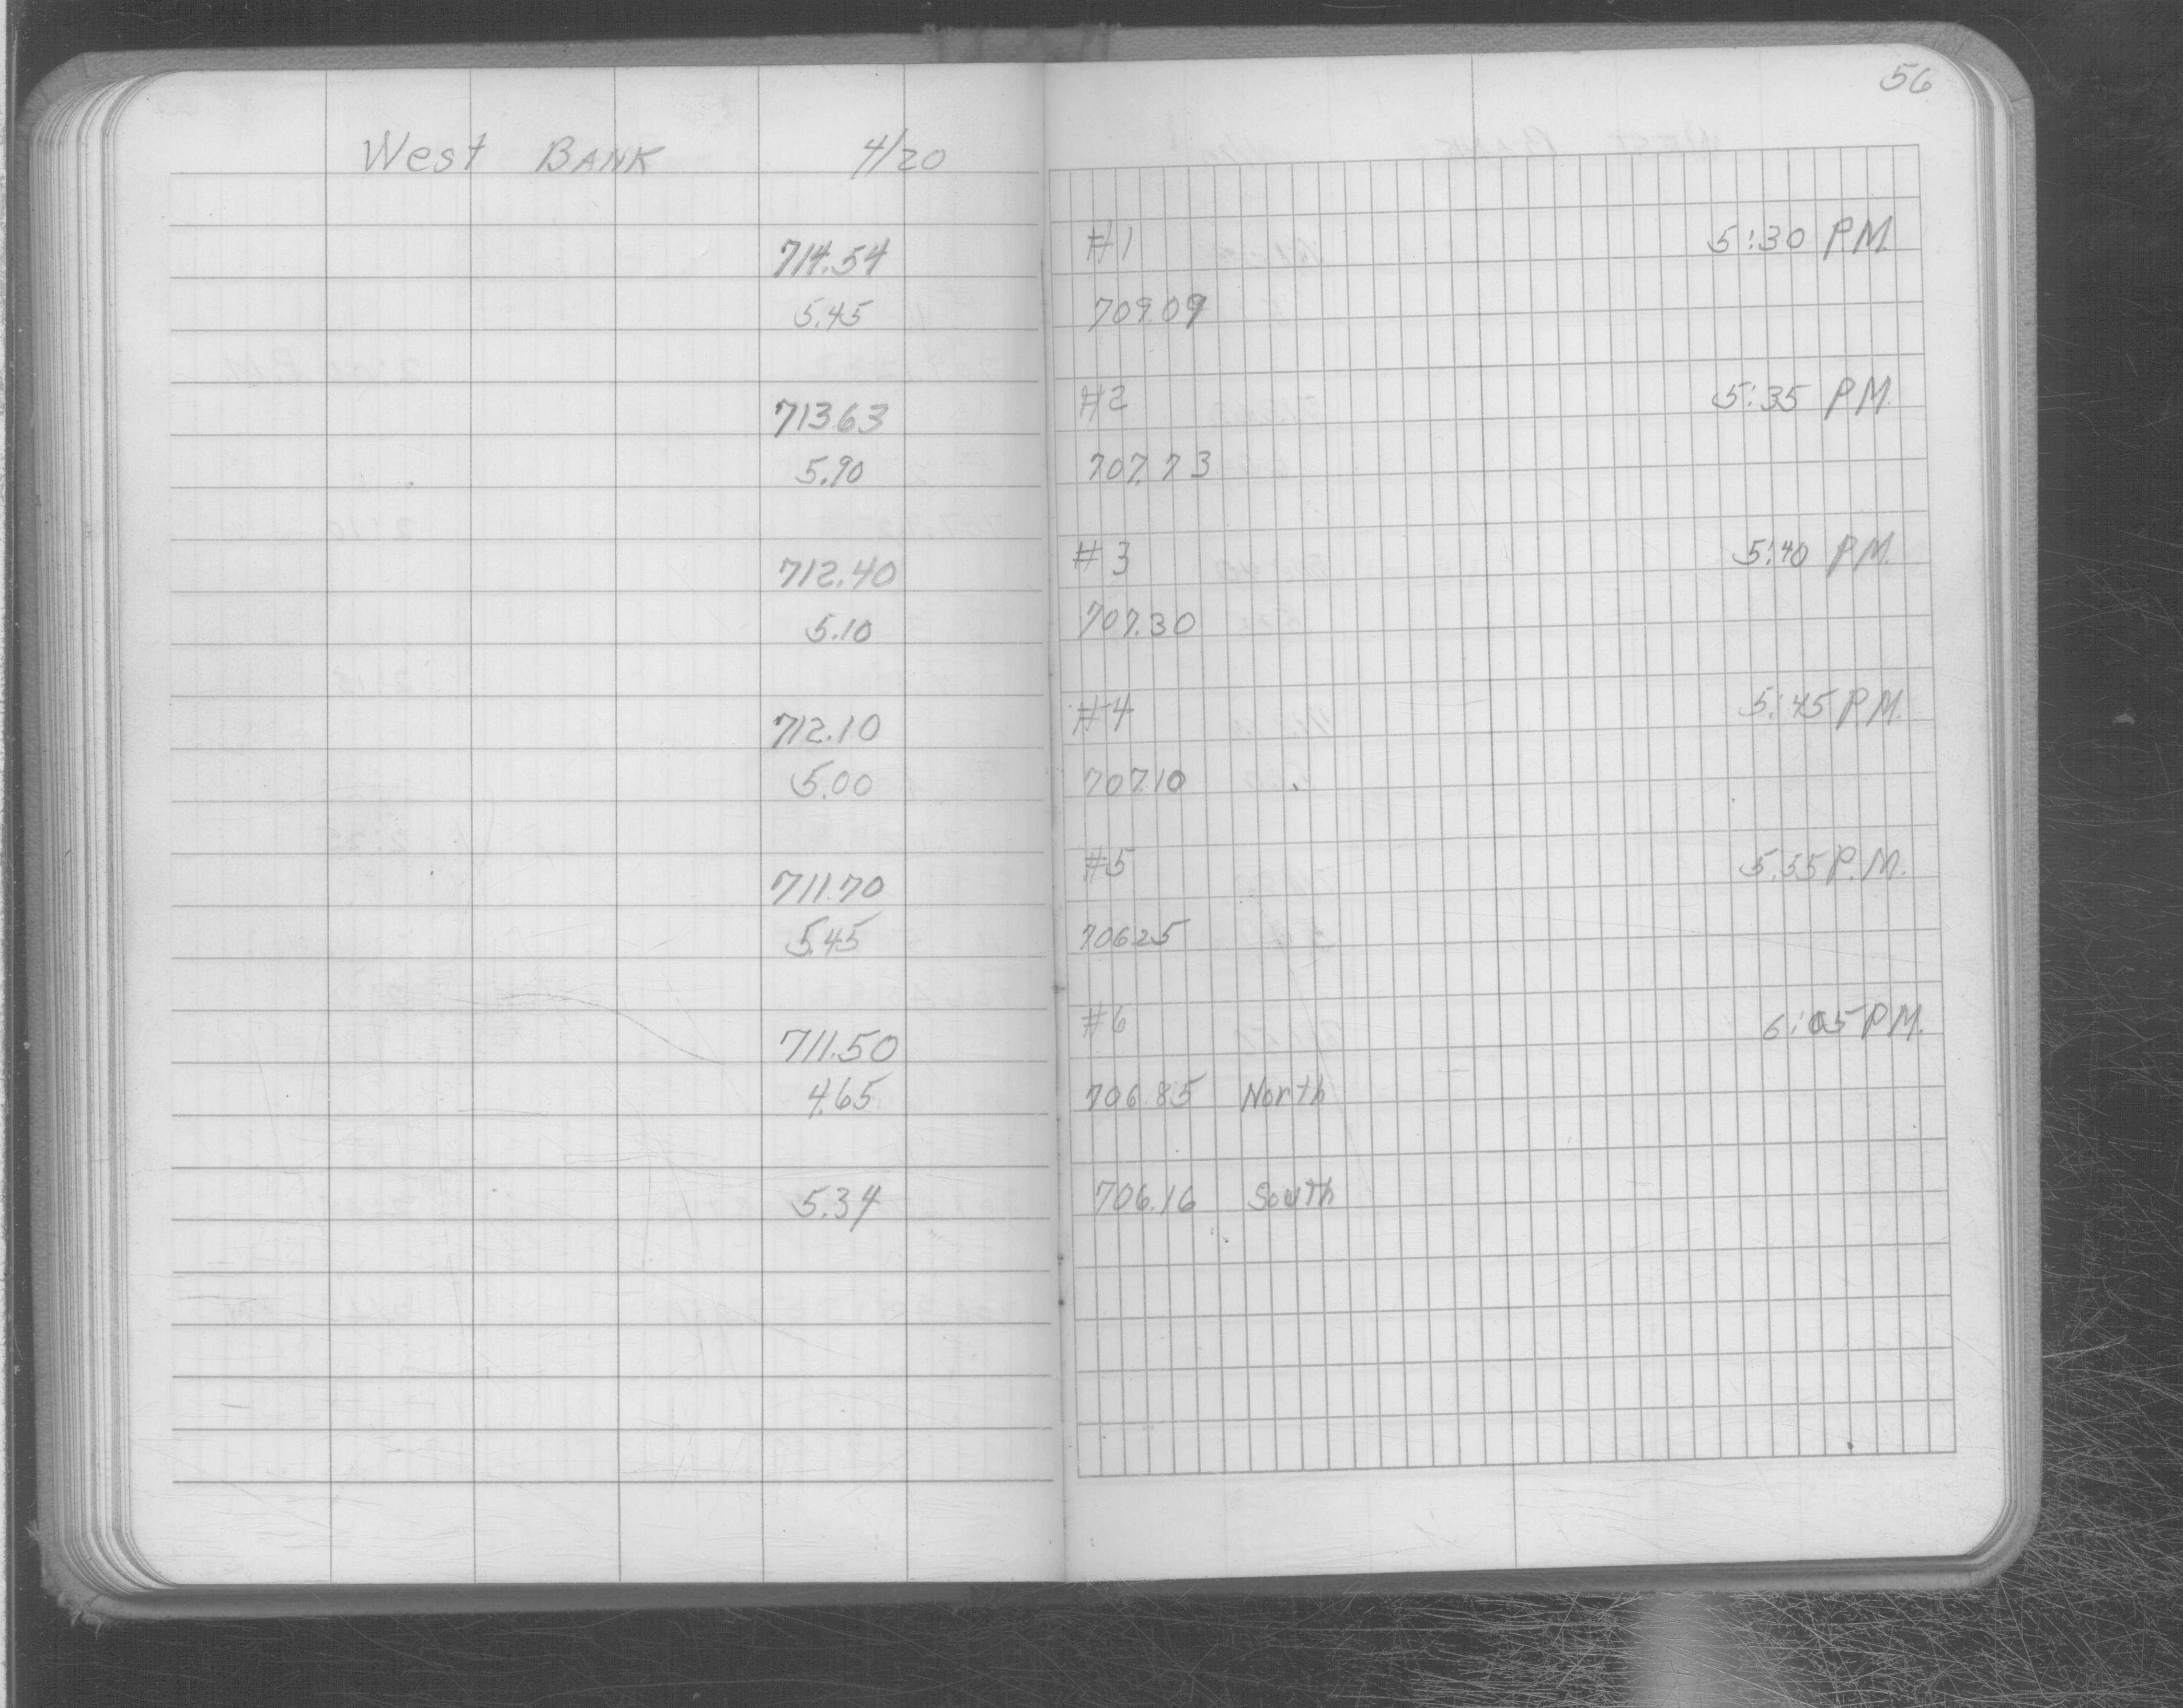 56
West BANK 4/20
714.54 #1 5:30 PM
5.45 709.09
713.63 #2 5:35 PM.
5.90 707.73
712.40 #3 5:40 PM.
5.10 707.30
712.10 #4 5:45 PM.
5.00 707.10
711.70 #5 5:55 P.M.
5.45 706.25
711.50 #6 6:05 PM.
4.65 706.85 North
5.34 706.16 South